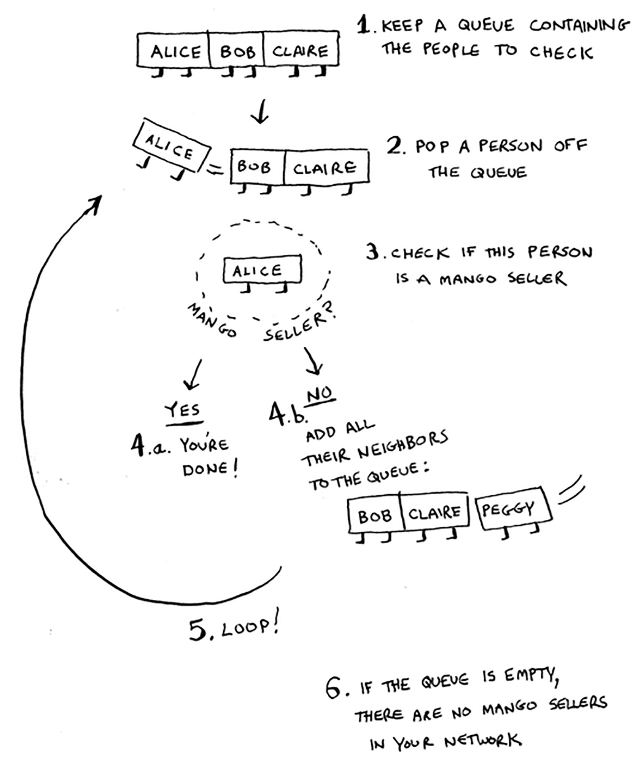 ALICE BOB CLAIRE
1. KEEP A QUEUE CONTAINING
THE PEOPLE TO CHECK
ALICE = BOB CLAIRE
2. POP A PERSON OFF
THE QUEUE
ALICE
MANGO SELLER?
3. CHECK IF THIS PERSON
IS A MANGO SELLER
YES
4.a. YOU'RE
DONE!
NO
4.b.
ADD ALL
THEIR NEIGHBORS
TO THE QUEUE:
BOB CLAIRE PEGGY
5. LOOP!
6. IF THE QUEUE IS EMPTY,
THERE ARE NO MANGO SELLERS
IN YOUR NETWORK